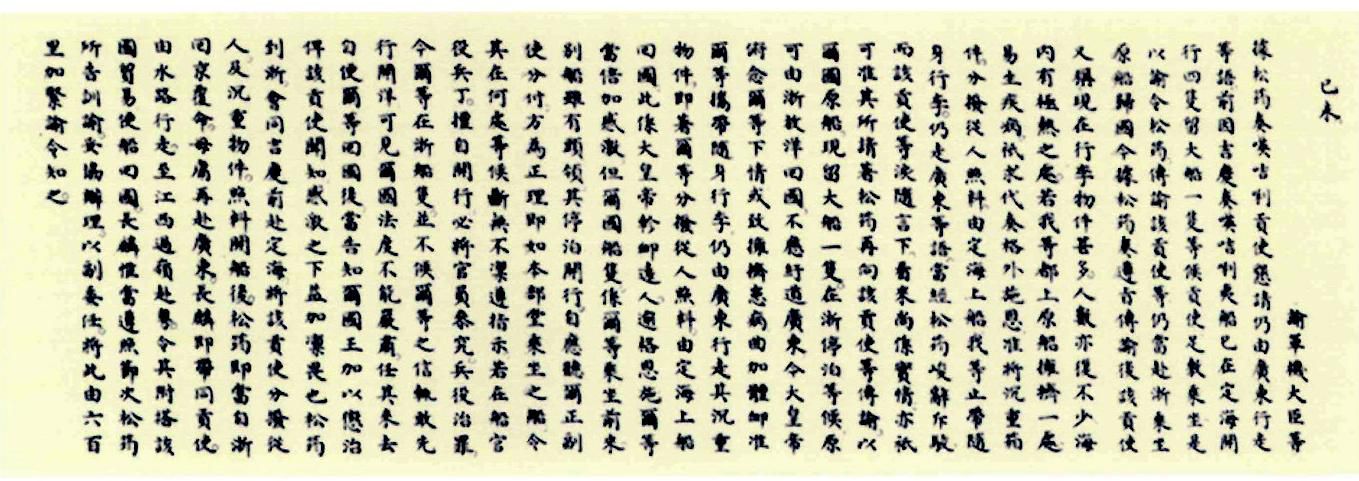 己未
諭軍機大臣等
據松筠奏𠸄咭唎貢使懇請仍由廣東行走
等語前因吉慶奏𠸄咭唎夷船已在定海開
行四隻留大船一隻等候貢使足敷乘坐是
以諭令松筠傳諭該貢使等仍當赴浙乘坐
原船歸國今據松筠奏遵旨傳諭後該貢使
又稱現在行李物件甚多人數亦復不少海
內有極熱之處若我等都上原船擁擠一處
易生疾病祇求代奏格外施恩准將沉重箱
件分撥從人照料由定海上船我等止帶隨
身行李仍走廣東等語當經松筠峻辭斥駁
而該貢使等淚隨言下看來尚係實情亦祇
可准其所請著松筠再向該貢使等傳諭以
爾國原船現留大船一隻在浙停泊等候原
可由浙放洋回國不應紆道廣東今大皇帝
俯念爾等下情或致擁擠患病曲加體卹准
爾等攜帶隨身行李仍由廣東行走其沉重
物件即著爾等分撥從人照料由定海上船
回國此係大皇帝軫卹遠人逾格恩施爾等
當倍加感激但爾國船隻係爾等乘坐前來
別船雖有頭領其停泊開行自應聽爾正副
使分付方為正理即如本部堂乘坐之船令
其在何處等候斷無不凜遵指示若在船官
役兵丁擅自開行必將官員參究兵役治罪
今爾等在浙船隻並不候爾等之信輒敢先
行開洋可見爾國法度不能嚴肅任其來去
自便爾等回國後當告知爾國王加以懲治
俾該貢使聞知感激之下益加凜畏也松筠
到浙會同吉慶前赴定海將該貢使分撥從
人及沉重物件照料開船後松筠即當自浙
回京覆命毋庸再赴廣東長麟即帶同貢使
由水路行走至江西過嶺赴粵令其附搭該
國貿易便船回國長麟惟當遵照節次松筠
所告訓諭妥協辦理以副委任將此由六百
里加緊諭令知之